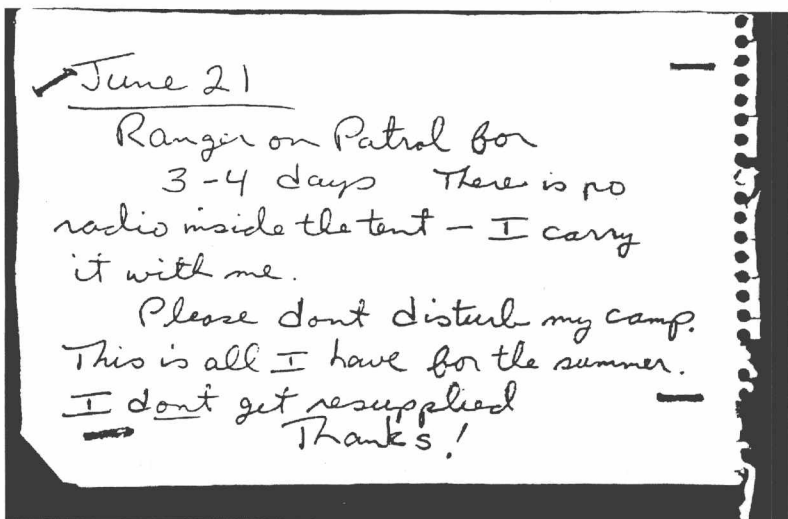 June 21
Ranger on Patrol for
3-4 days There is no
radio inside the tent – I carry
it with me.
Please dont disturb my camp.
This is all I have for the summer.
I dont get resupplied
Thanks!